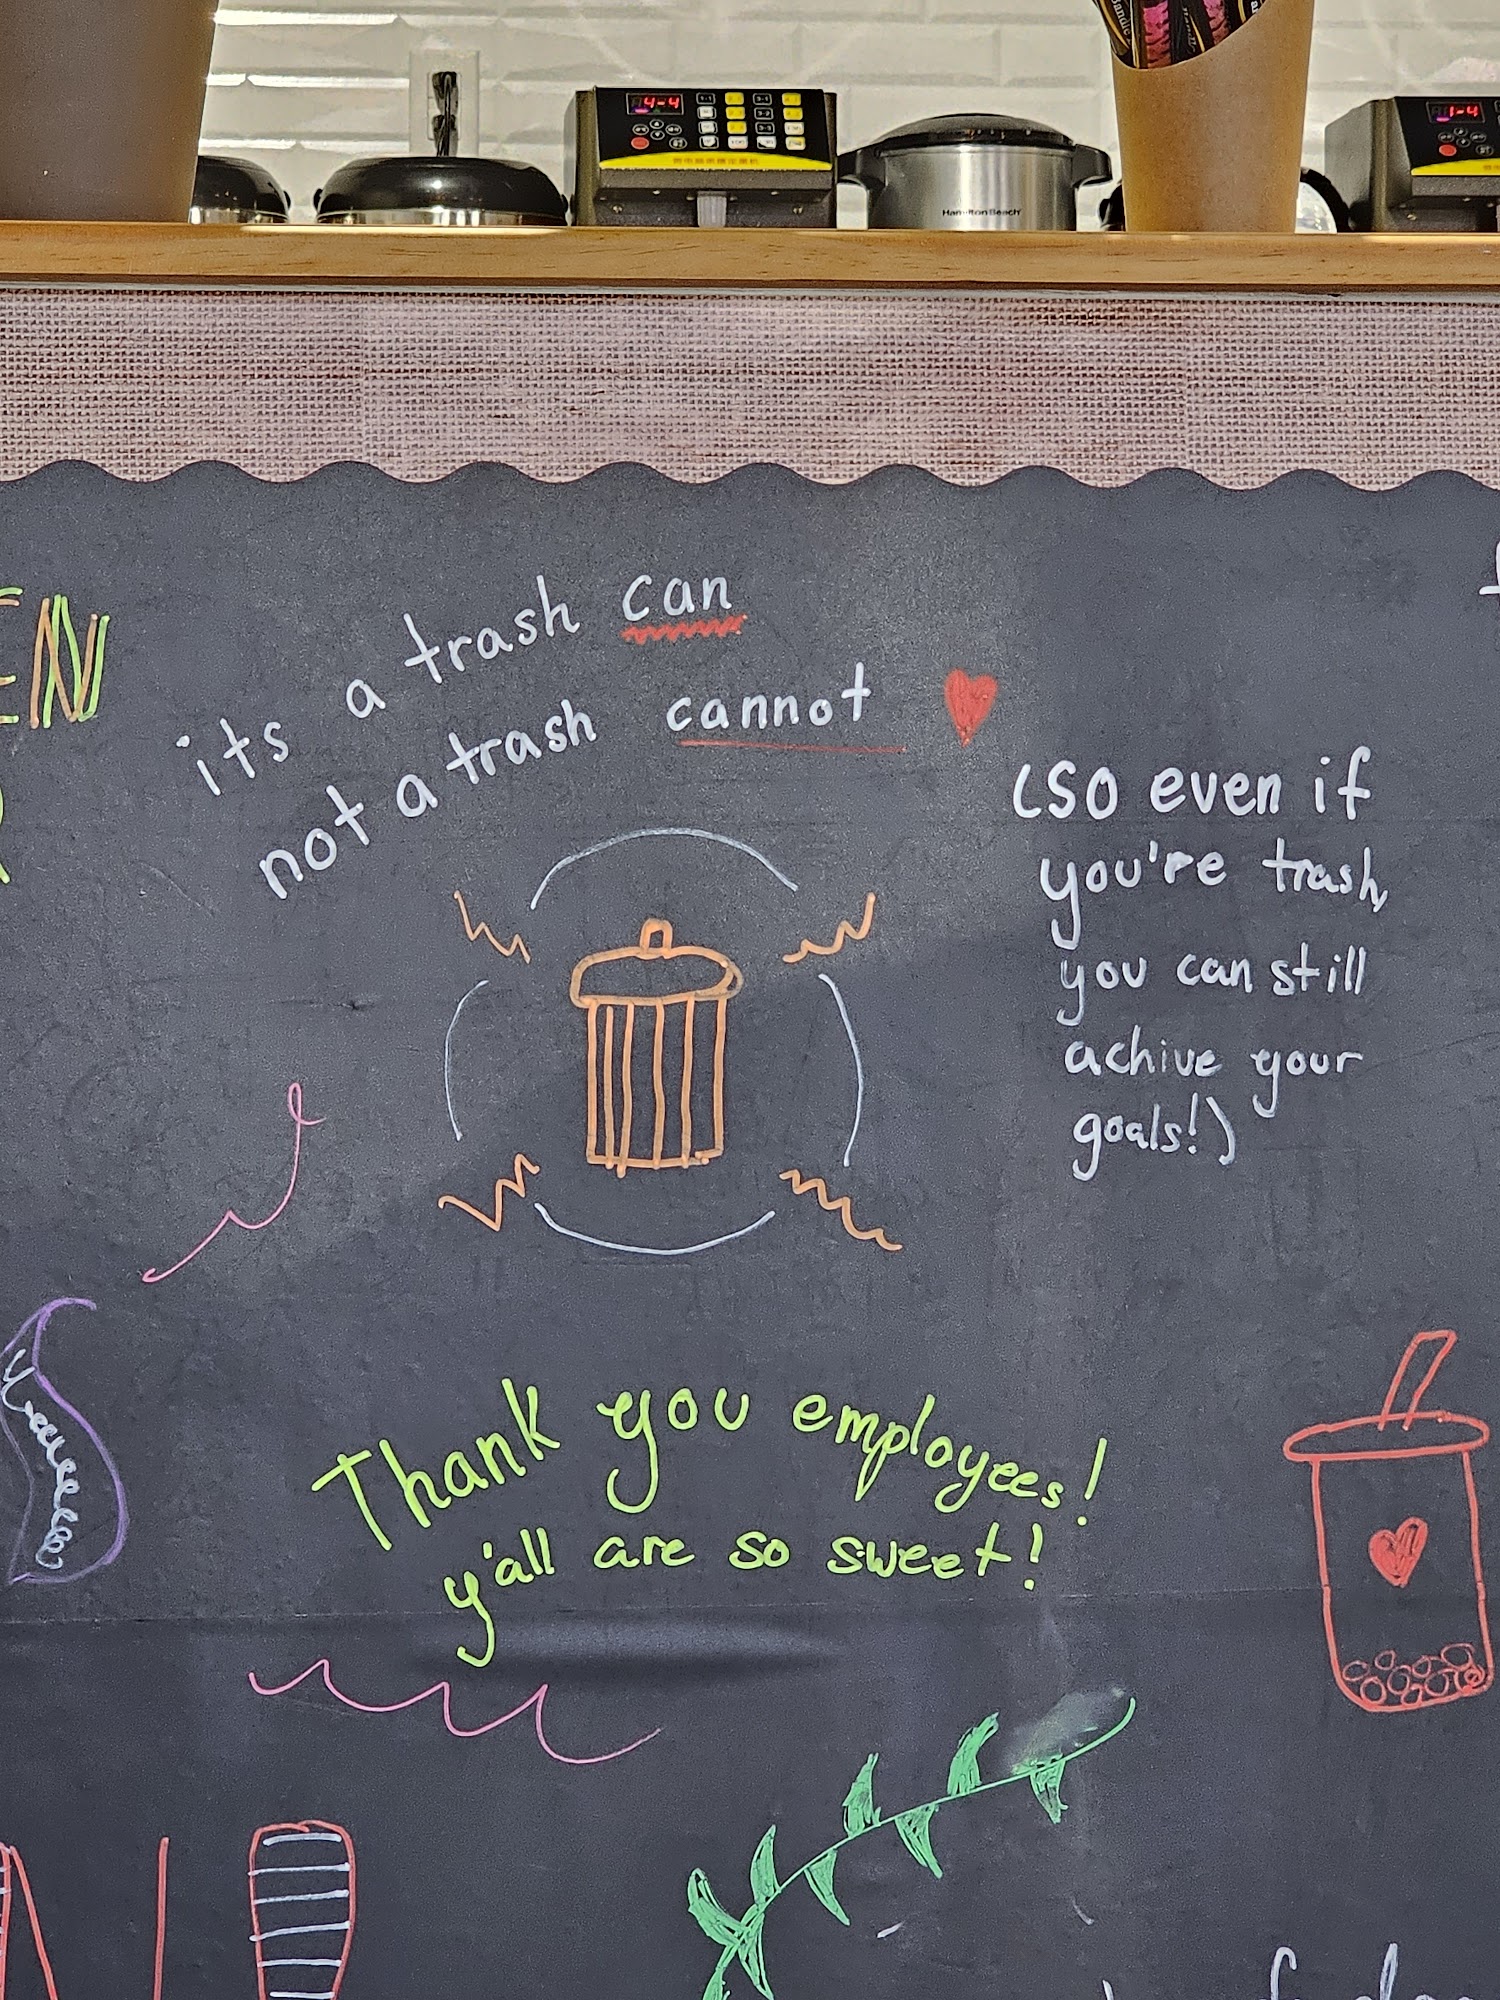 4-4
1-4
Hamilton Beach
EN
its a trash can
not a trash cannot
(so even if
you're trash,
you can still
achive your
goals!)
Thank you employees!
y'all are so sweet!